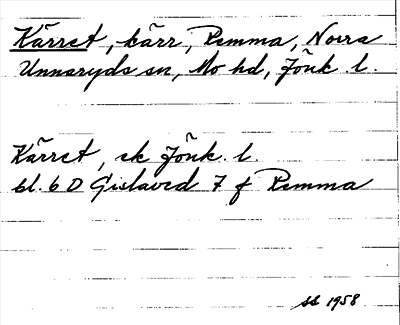 Kärret, kärr, Remma, Norra
Unnaryds sn, Mo hd, Jönk. l.
Kärret, ek Jönk. l.
bl. 6 D Gislaved 7 f Remma
ss 1958